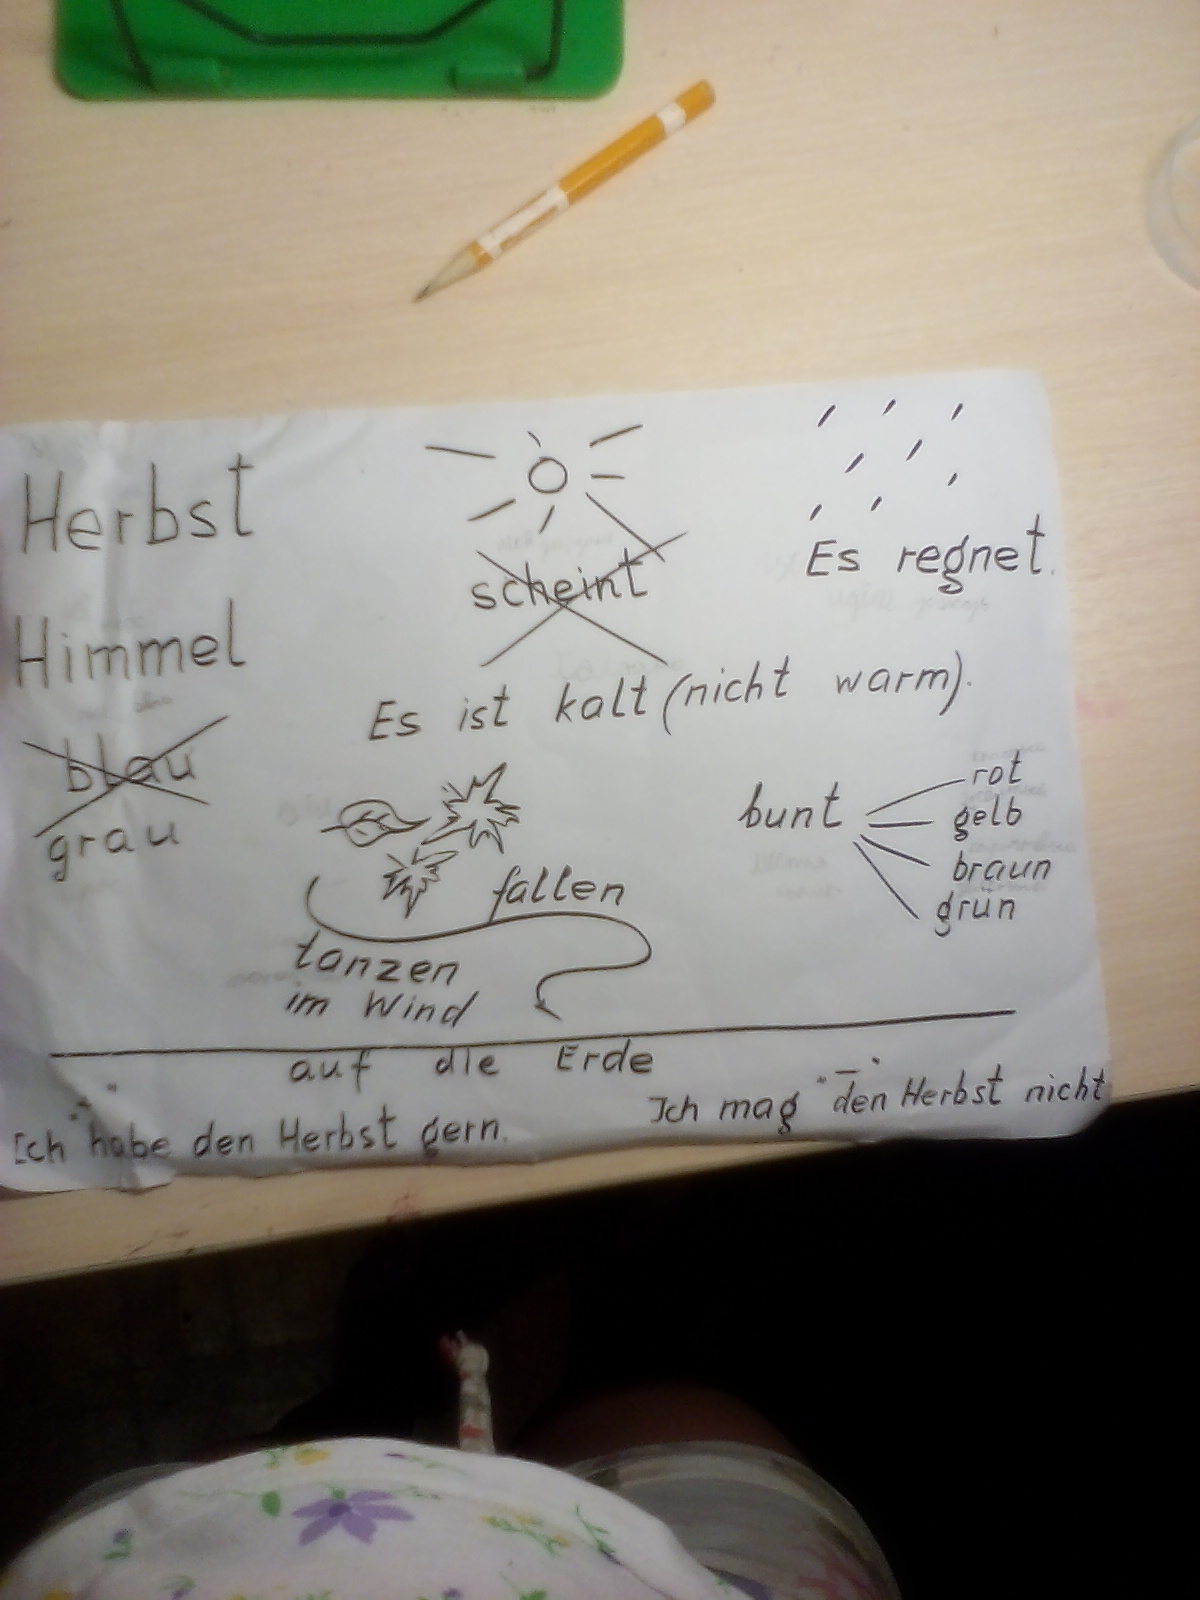 Herbst
scheint
Es regnet.
Himmel
Es ist kalt (nicht warm).
blau
grau
bunt
rot
gelb
braun
grun
fallen
tanzen
im Wind
auf die Erde
Ich habe den Herbst gern.
Ich mag den Herbst nicht